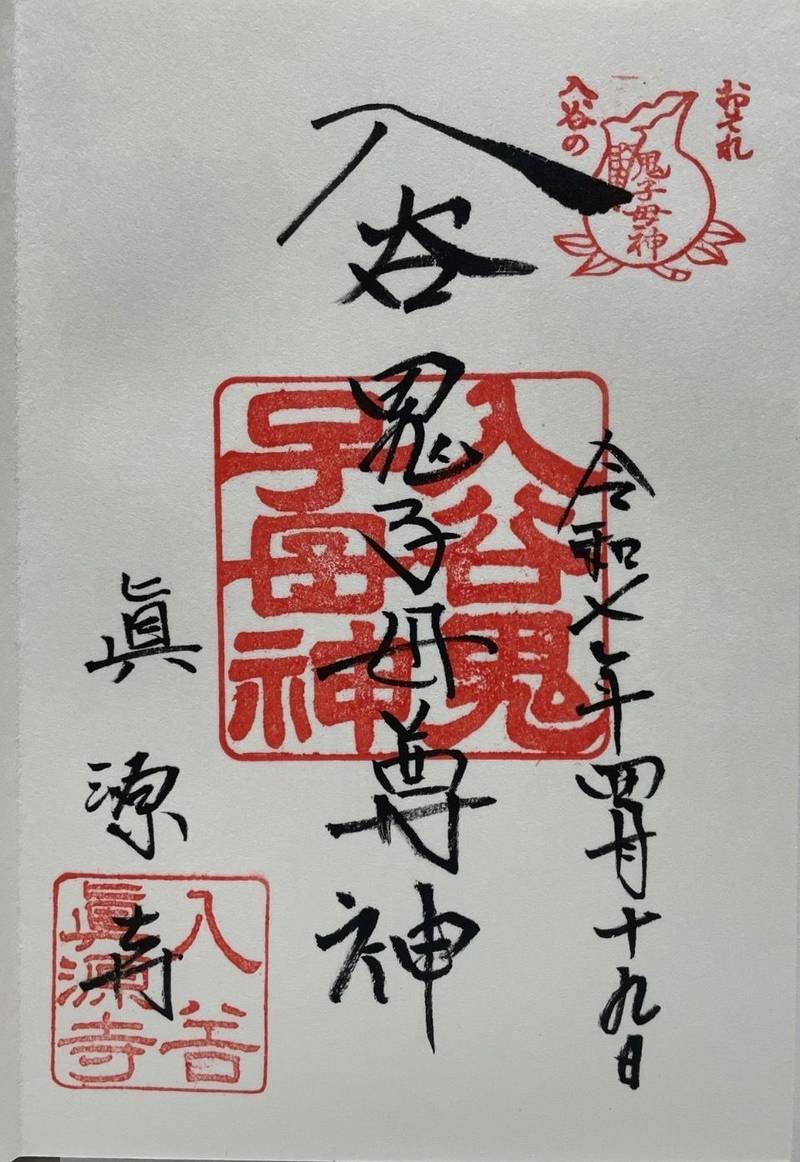 おそれ
入谷の
鬼子母神
令和七年四月十九日
入谷鬼子母尊神
入谷鬼
子母神
眞源寺
入谷
眞源寺